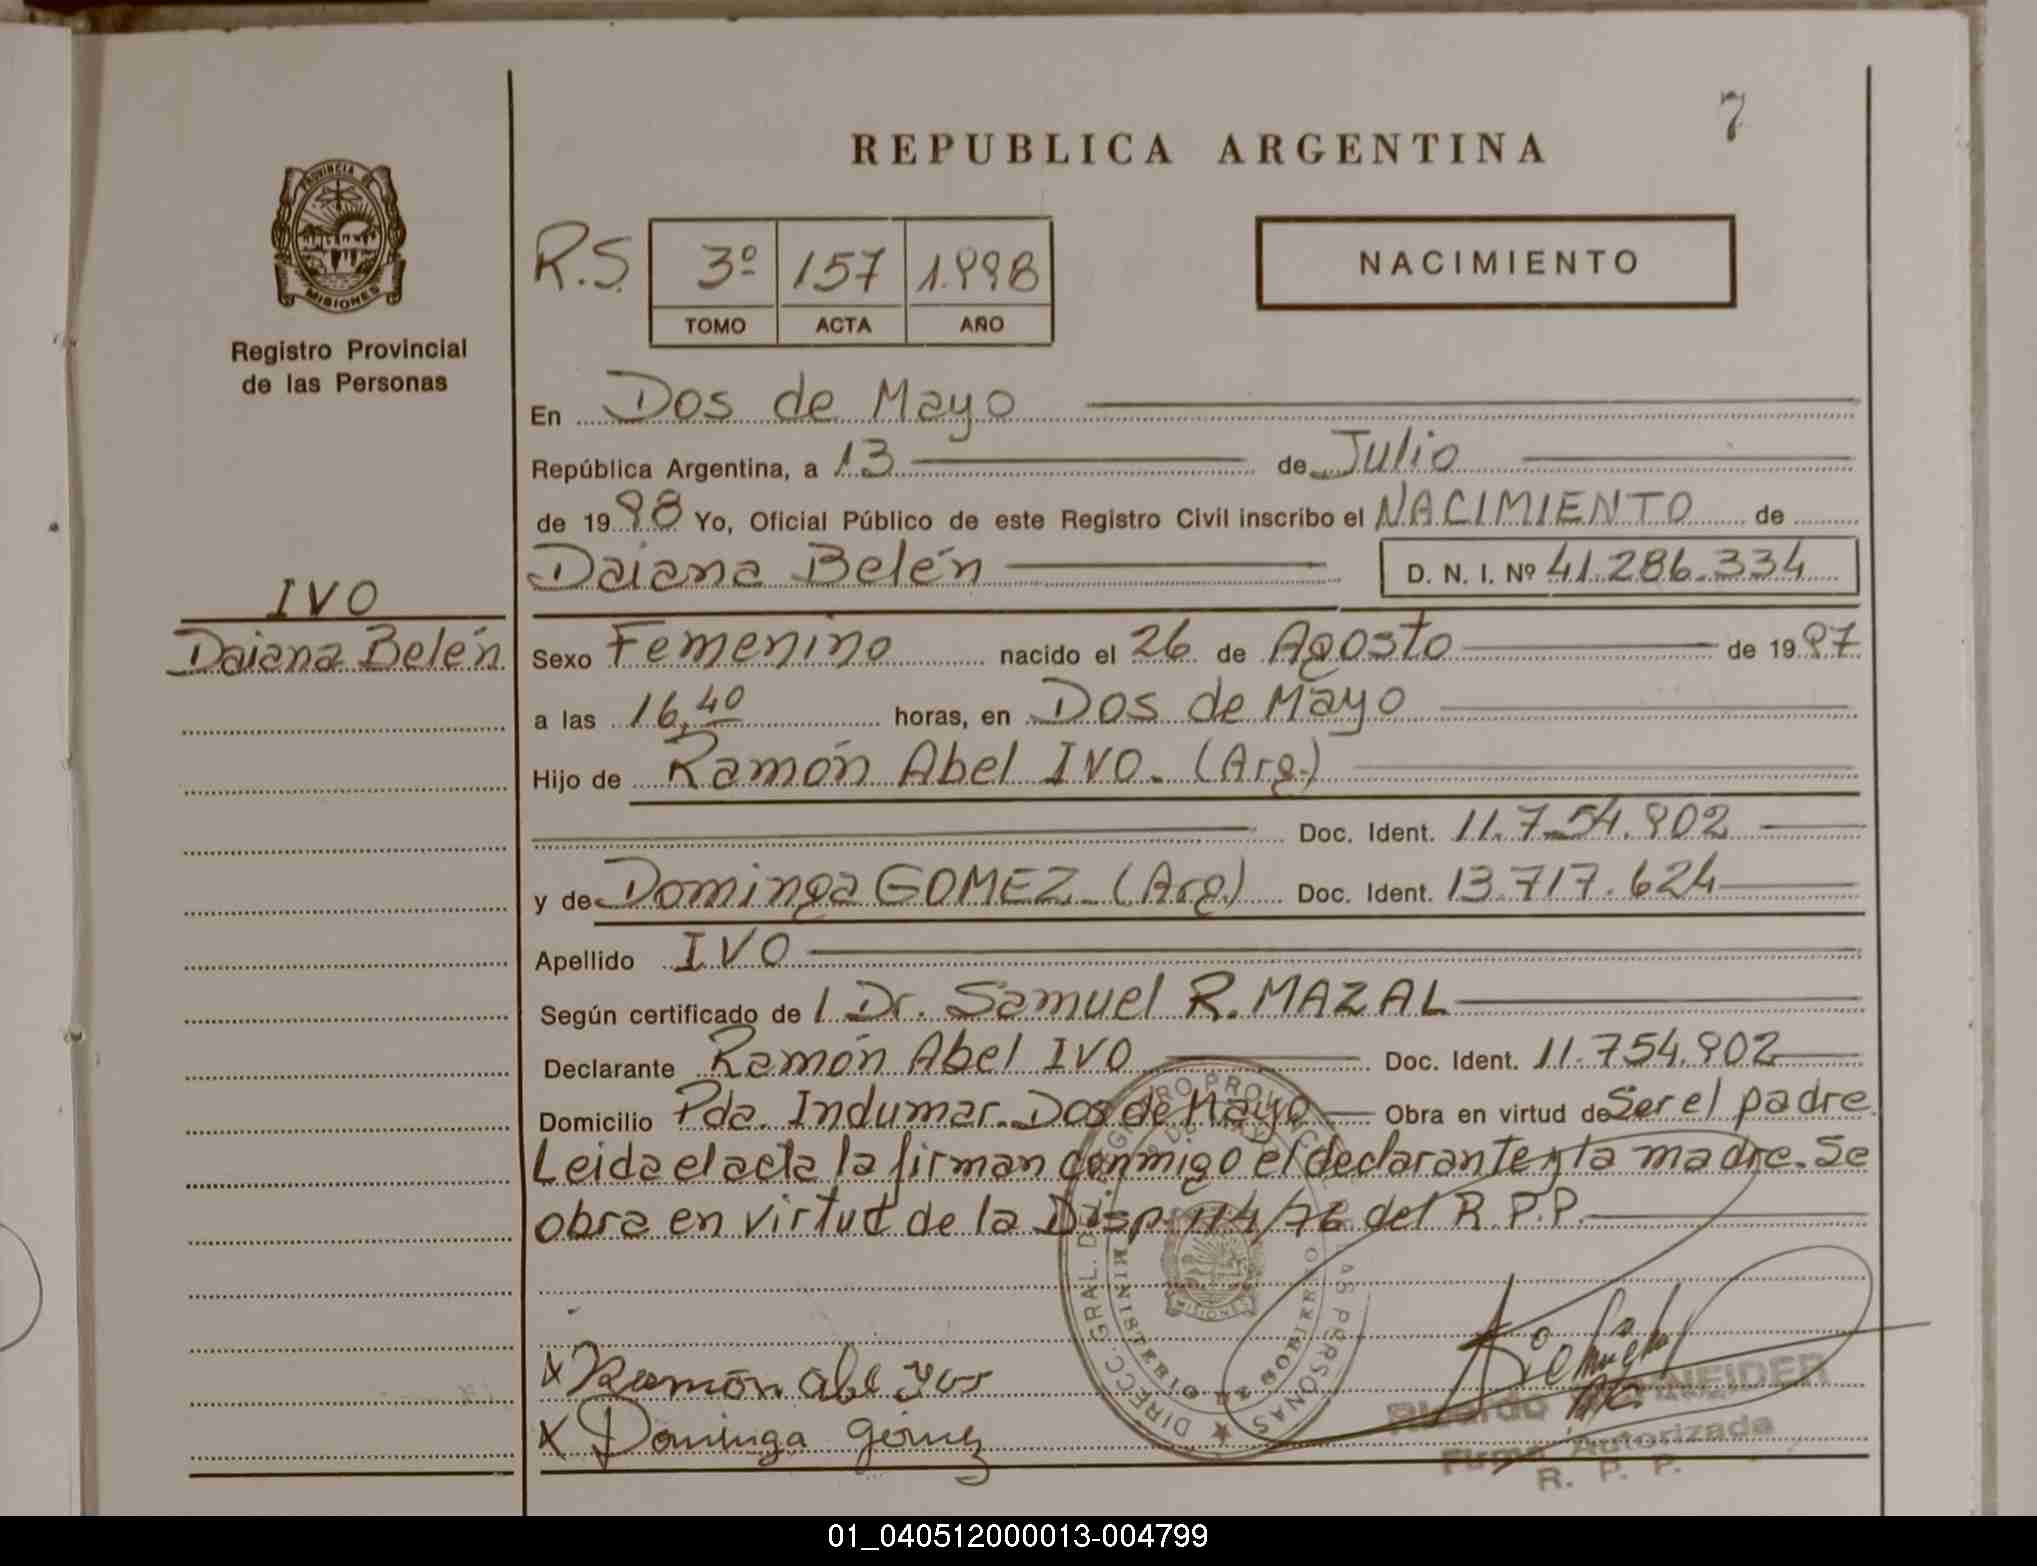 7
REPUBLICA ARGENTINA
PROVINCIA DE
MISIONES
Registro Provincial
de las Personas
R.S. 3º 157 1.998
TOMO ACTA AÑO
NACIMIENTO
En Dos de Mayo
República Argentina, a 13 de Julio
de 1998 Yo, Oficial Público de este Registro Civil inscribo el NACIMIENTO de
Daiana Belén D. N. I. Nº 41.286.334
IVO
Daiana Belén
Sexo Femenino nacido el 26 de Agosto de 1997
a las 16,40 horas, en Dos de Mayo
Hijo de Ramón Abel IVO. (Arg.)
Doc. Ident. 11.754.902
y de Dominga GOMEZ (Arg) Doc. Ident. 13.717.624
Apellido IVO
Según certificado de l Dr. Samuel R. MAZAL
Declarante Ramón Abel IVO Doc. Ident. 11.754.902
Domicilio Pda. Indumar. Dos de Mayo Obra en virtud de Ser el padre.
Leida el acta la firman conmigo el declarante y la madre. Se
obra en virtud de la Disp. 114/76 del R.P.P.
DIRECC. GRAL. DEL REGISTRO PROVINCIAL DE LAS PERSONAS
MINISTERIO DE GOBIERNO
MISIONES
x Ramón
x Dominga gomez
Ricardo SCHNEIDER
Firma Autorizada
R. P. P.
01_040512000013-004799